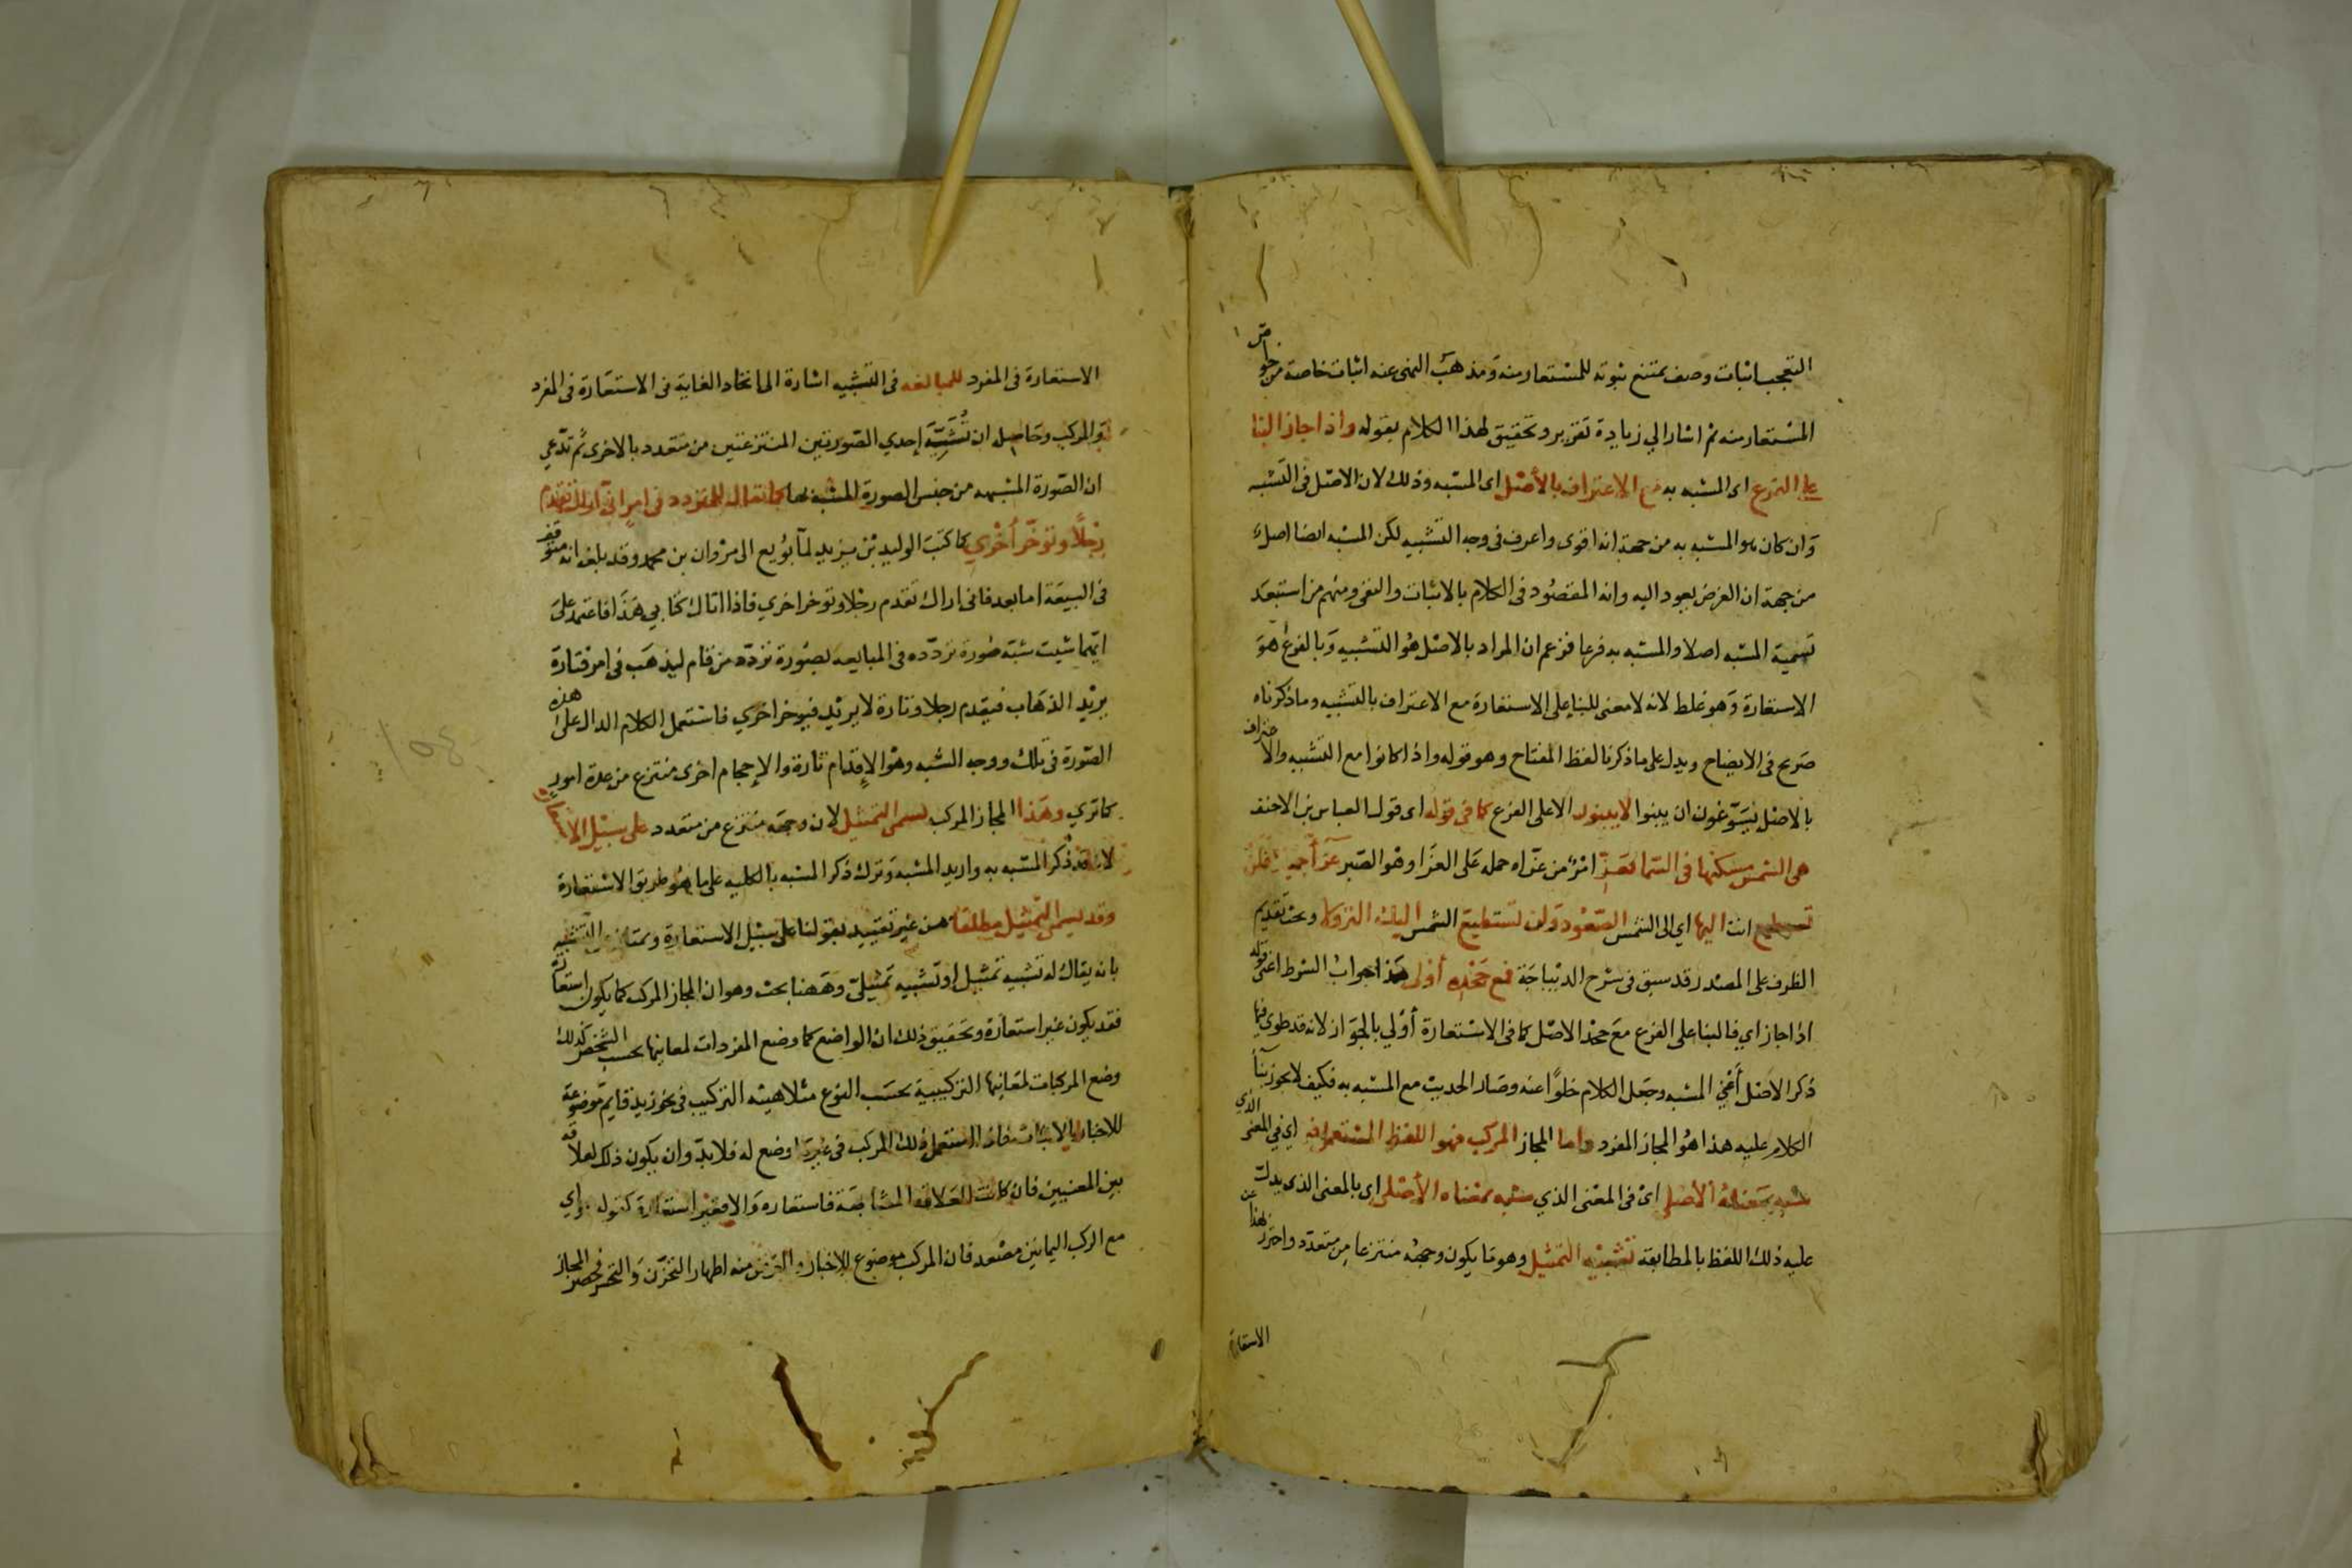 التعجب اثبات وصف يمتنع ثبوته للمستعار منه ومذهب النهى عنه اثبات خاصة من خواص
المستعار منه ثم اشار الي زيادة تقرير وتحقيق لهذا الكلام بقوله واذا جاز البنا
على الفرع اى المشبه به مع الاعتراف بالأصل اى المشبه وذلك لان الاصل فى التشبيه
وان كان هو المشبه به من جهة انه اقوى واعرف فى وجه التشبيه لكن المشبه ايضا اصل
من جهة ان الغرض يعود اليه وانه المقصود فى الكلام بالاثبات والنفى ومنهم من استبعد
تسمية المشبه اصلا والمشبه به فرعا فزعم ان المراد بالاصل هو التشبيه وبالفرع هو
الاستعارة وهو غلط لانه لا معنى للبنا على الاستعارة مع الاعتراف بالتشبيه وما ذكرناه
صريح فى الايضاح ويدل على ما ذكرنا لفظ المفتاح وهو قوله واذا كانوا مع التشبيه والاعتراف
بالاصل يسوغون ان يبنوا لا يبنون الا على الفرع كما فى قوله اى قول العباس بن الاحنف
هى الشمس مسكنها فى السما فعز امر من عزاه حمله على العزا وهو الصبر عزآ جميلا فلن
تستطيع انت اليها اي الى الشمس الصعود ولن تستطيع الشمس اليك النزولا وبحث تقديم
الظرف على المصدر قد سبق فى شرح الديباجة فمع جحده أولى هذا جواب الشرط اعنى قوله
اذا جاز اي فالبنا على الفرع مع جحد الاصل كما فى الاستعارة أولي بالجواز لانه قد طوى فيها
ذكر الاصل أعني المشبه وجعل الكلام خلوا عنه وصار الحديث مع المشبه به فكيف لا يجوز بنآ
الكلام عليه هذا هو المجاز المفرد واما المجاز المركب فهو اللفظ المستعمل فيه اي في المعنى الذي
شبه بمعناه الأصلي اى فى المعنى الذي شبه بمعناه الأصلى اى بالمعنى الذى يدل
عليه ذلك اللفظ بالمطابقة تشبيه التمثيل وهو ما يكون وجهه منتزعا من متعدد واحترز بهذا عن
الاستعارة
الاستعارة فى المفرد للمبالغه فى التشبيه اشارة الى اتحاد الغاية فى الاستعارة فى المفرد
والمركب وحاصله ان تشبه إحدي الصورتين المنتزعتين من متعدد بالاخرى ثم تدعي
ان الصورة المشبهه من جنس الصورة المشبه بها كما يقال للمتردد فى امر انى اراك تقدم
رجلا وتؤخر أخري كما كتب الوليد بن يزيد لما بويع الى مروان بن محمد وقد بلغه انه متوقف
فى البيعة اما بعد فانى اراك تقدم رجلا وتوخر اخري فاذا اتاك كتابي هذا فاعتمد على
ايهما شيت شبه صورة تردده فى المبايعه بصورة تردد من قام ليذهب فى امر فتارة
يريد الذهاب فيقدم رجلا وتارة لا يريد فيوخر اخري فاستعمل الكلام الدال على هذه
الصورة فى تلك ووجه الشبه وهو الإقدام تارة والإحجام اخرى منتزع من عدة امور
كما تري وهذا المجاز المركب يسمى التمثيل لان وجهه منتزع من متعدد على سبيل الاستعارة
لانه قد ذكر المشبه به واريد المشبه وترك ذكر المشبه بالكليه على ما هو طريق الاستعارة
وقد يسمى التمثيل مطلقا من غير تقييد بقولنا على سبيل الاستعارة ويمتاز عن التشبيه
بانه يقال له تشبيه تمثيل او تشبيه تمثيلى وههنا بحث وهو ان المجاز المركب كما يكون استعارة
فقد يكون غير استعارة وتحقيق ذلك ان الواضع كما وضع المفردات لمعانيها بحسب الشخص كذلك
وضع المركبات لمعانيها التركيبية بحسب النوع مثلا هيئه التركيب فى نحو زيد قايم موضوعة
للاخبار بالاثبات فاذا استعمل ذلك المركب فى غير ما وضع له فلا بد وان يكون ذلك لعلاقة
بين المعنيين فان كانت العلاقة المشابهة فاستعاره والا فغير استعارة كقوله هواي
مع الركب اليمانين مصعد فان المركب موضوع للاخبار والغرض منه اظهار التحزن والتحسر فحصر المجاز